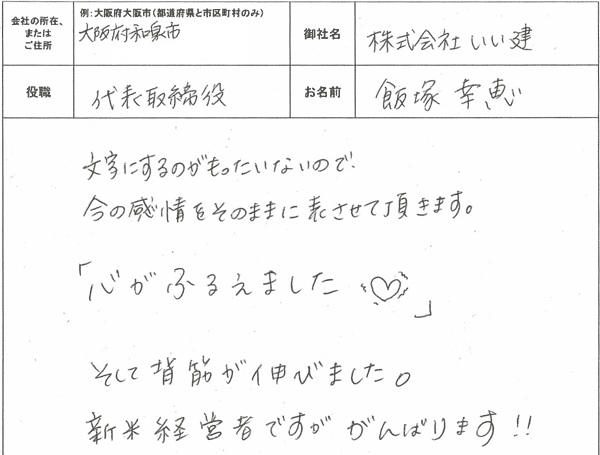 会社の所在、
または
ご住所
例：大阪府大阪市（都道府県と市区町村のみ）
大阪府和泉市
御社名
株式会社いい建
役職
代表取締役
お名前
飯塚 幸恵
文字にするのがもったいないので、
今の感情をそのままに表させて頂きます。
「心がふるえました♡」
そして背筋が伸びました。
新米経営者ですが がんばります!!